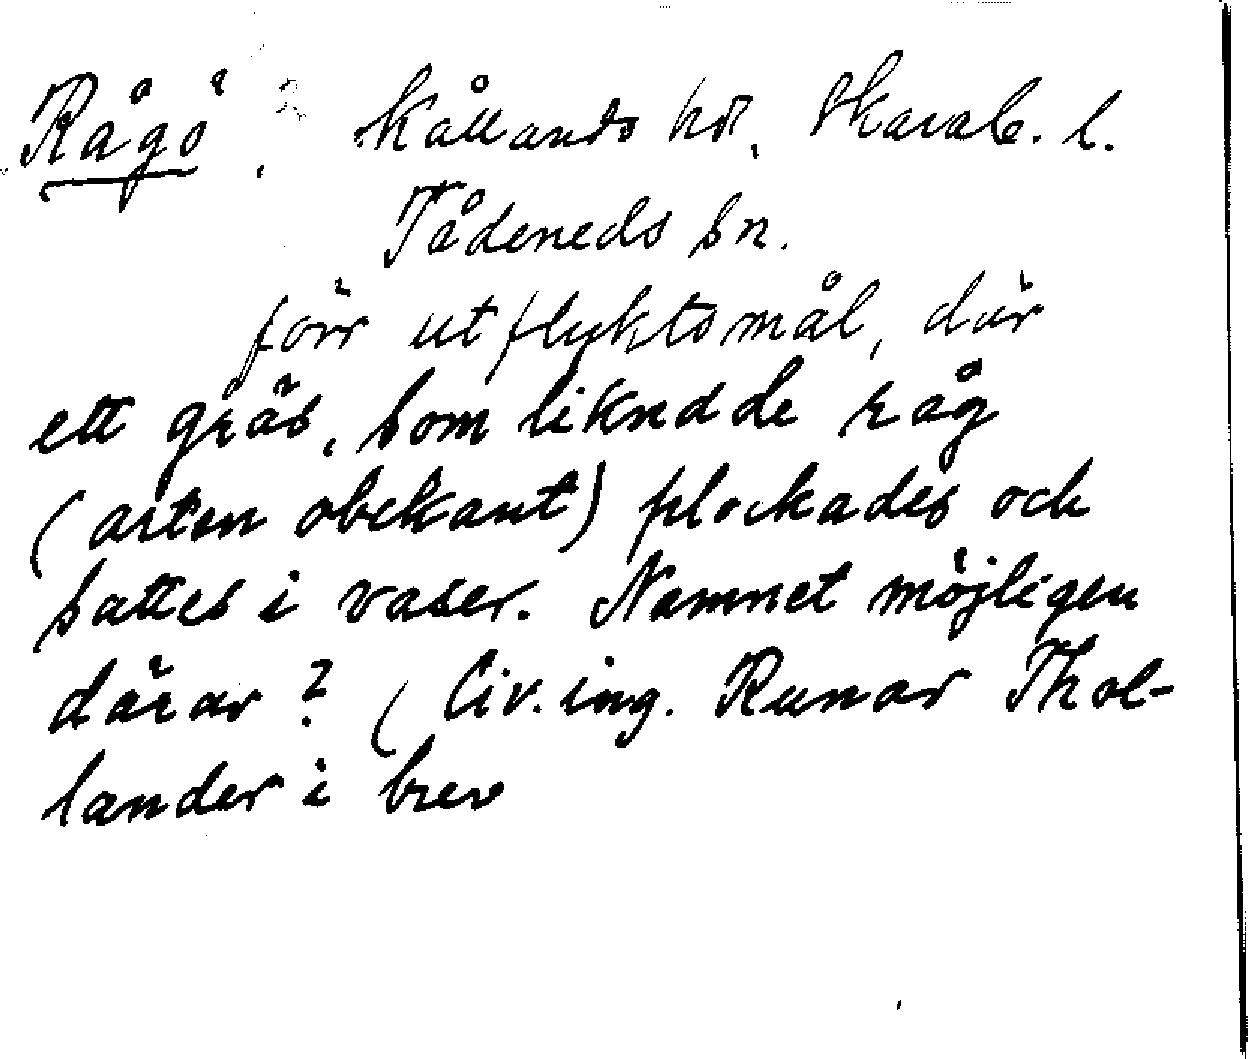 Rågö, Kållands hd, Skarab. l.
Tådeneds sn.
förr utflyktsmål, där
ett gräs, som liknade råg
(arten obekant) plockades och
sattes i vaser. Namnet möjligen
därav? (Civ.ing. Runar Thol-
lander i brev